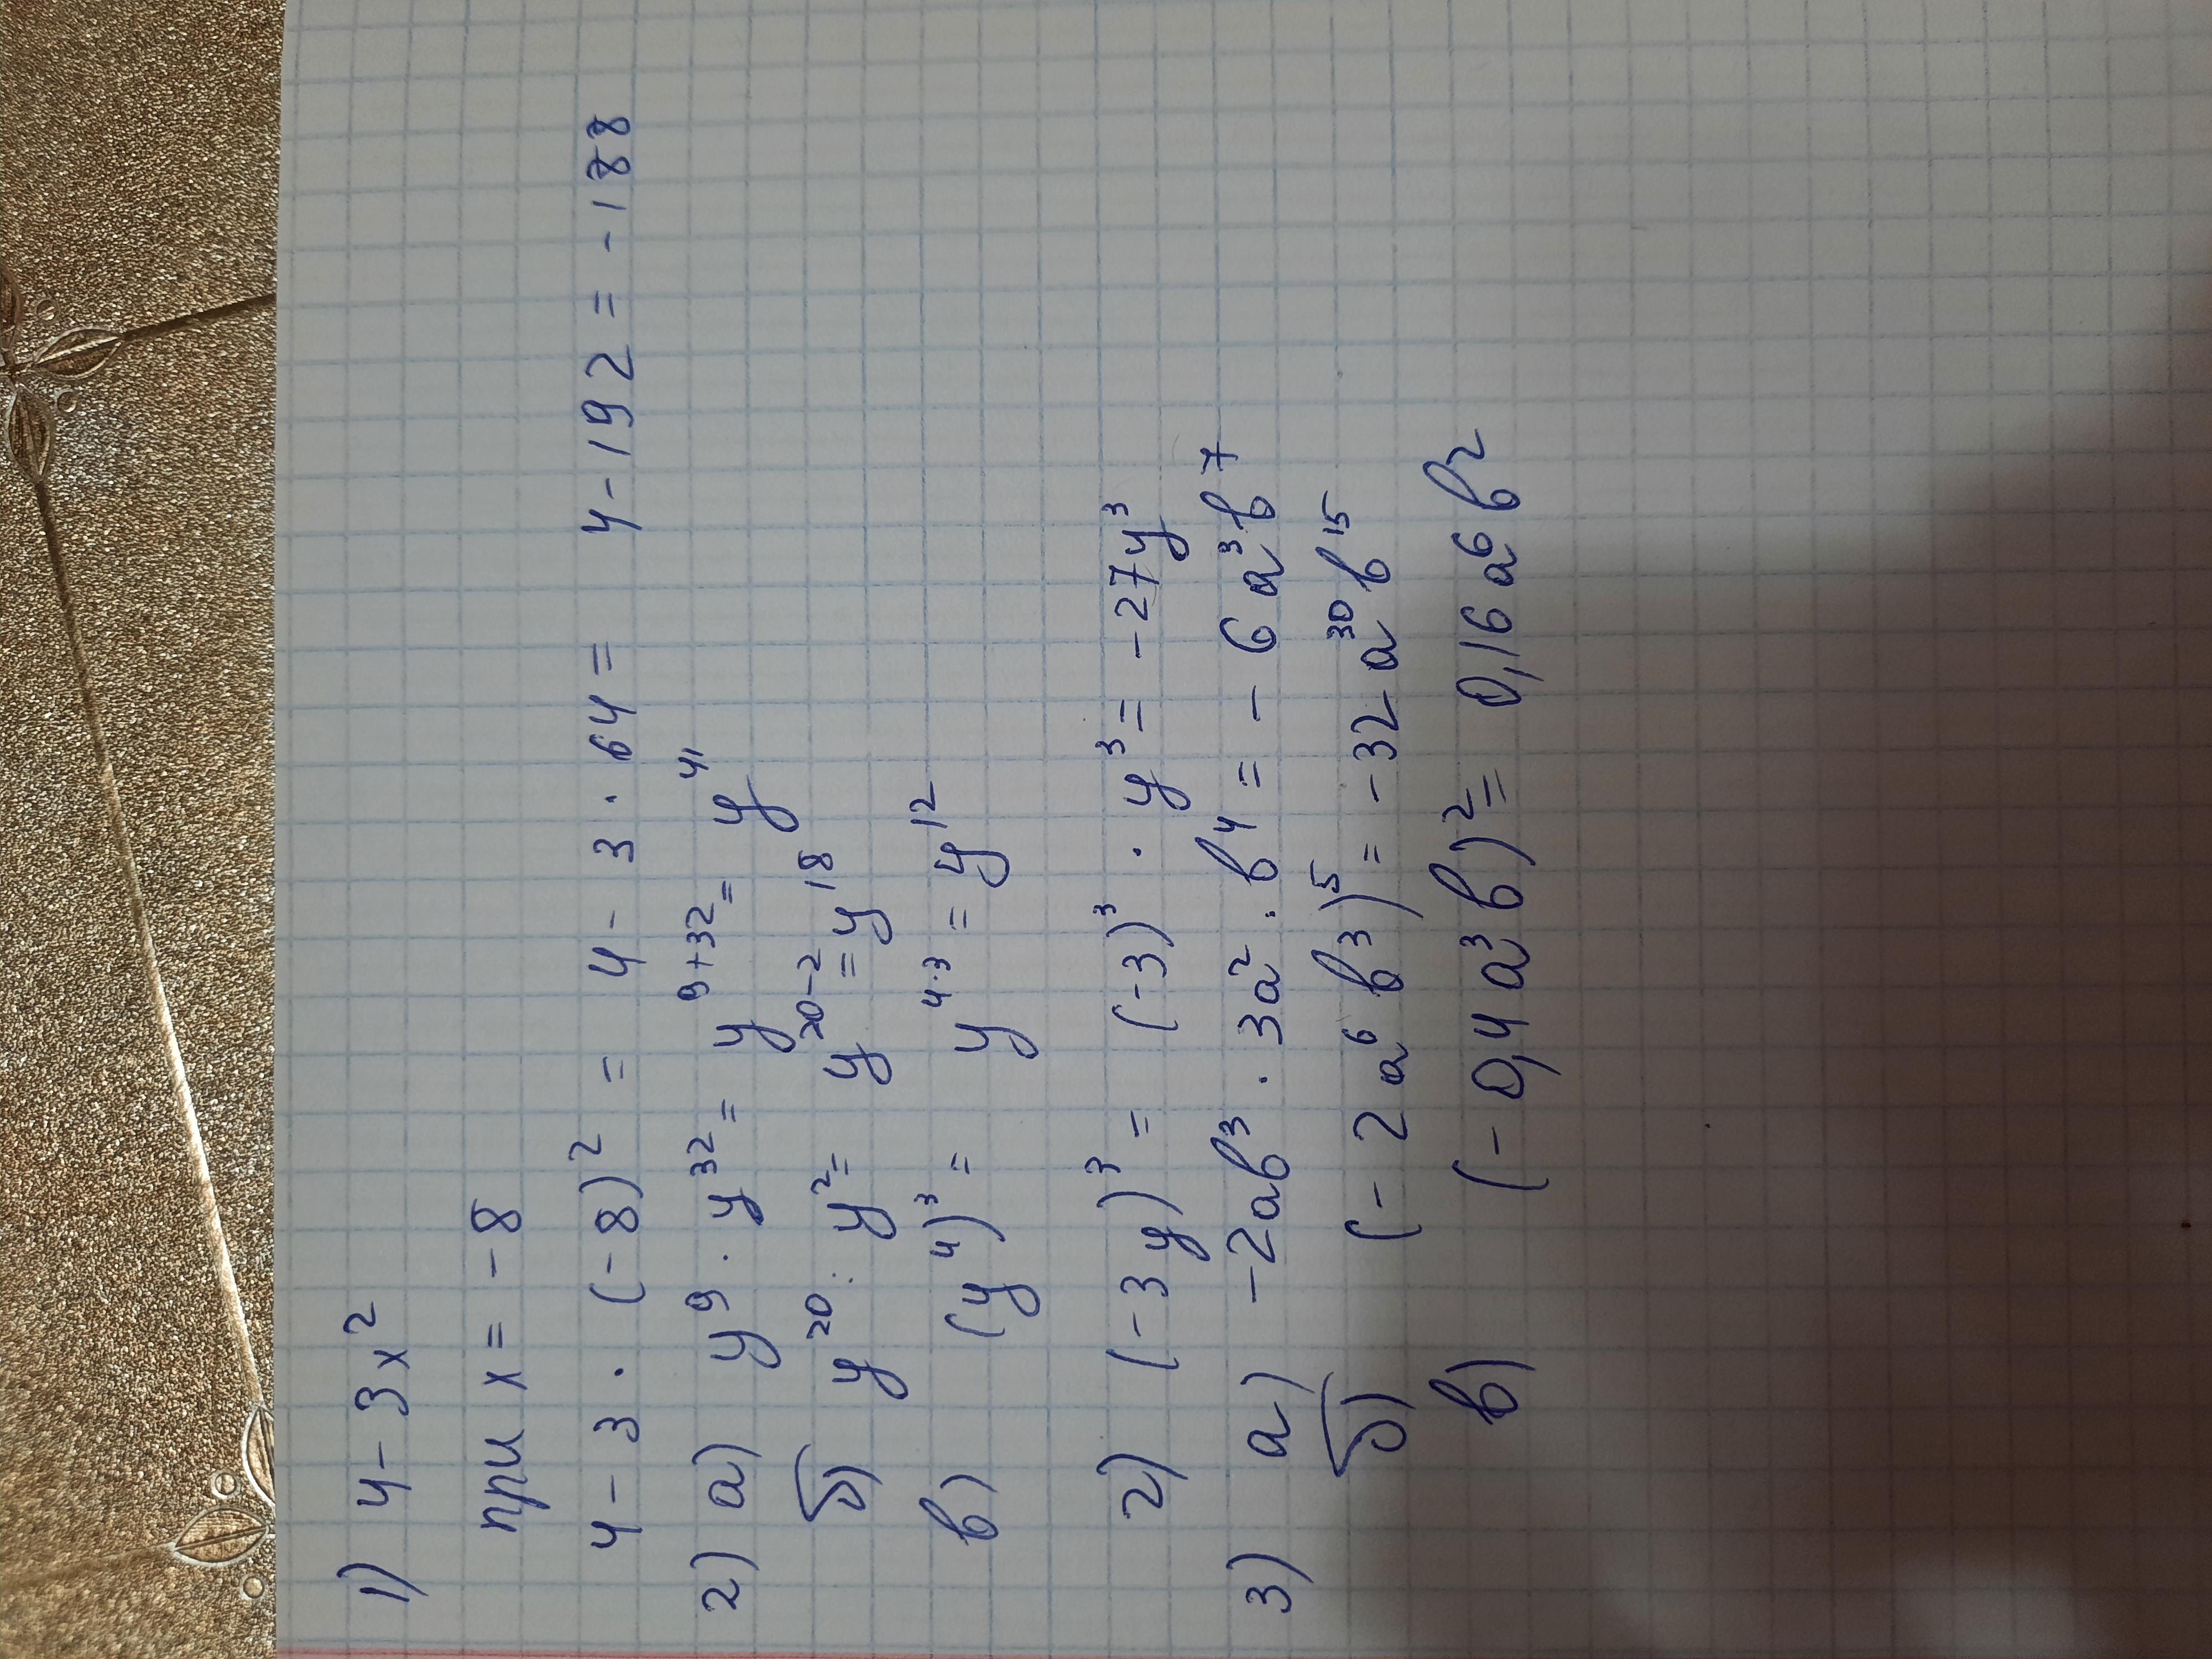 1) 4 - 3x²
при x = -8
4 - 3 · (-8)² = 4 - 3 · 64 = 4 - 192 = -188
2) а) y⁹ · y³² = y⁹⁺³² = y⁴¹
б) y²⁰ : y² = y²⁰⁻² = y¹⁸
в) (y⁴)³ = y⁴·³ = y¹²
г) (-3y)³ = (-3)³ · y³ = -27y³
3) а) -2ab³ · 3a² · b⁴ = -6a³b⁷
б) (-2a⁶b³)⁵ = -32a³⁰b¹⁵
в) (-0,4a³b)² = 0,16a⁶b²